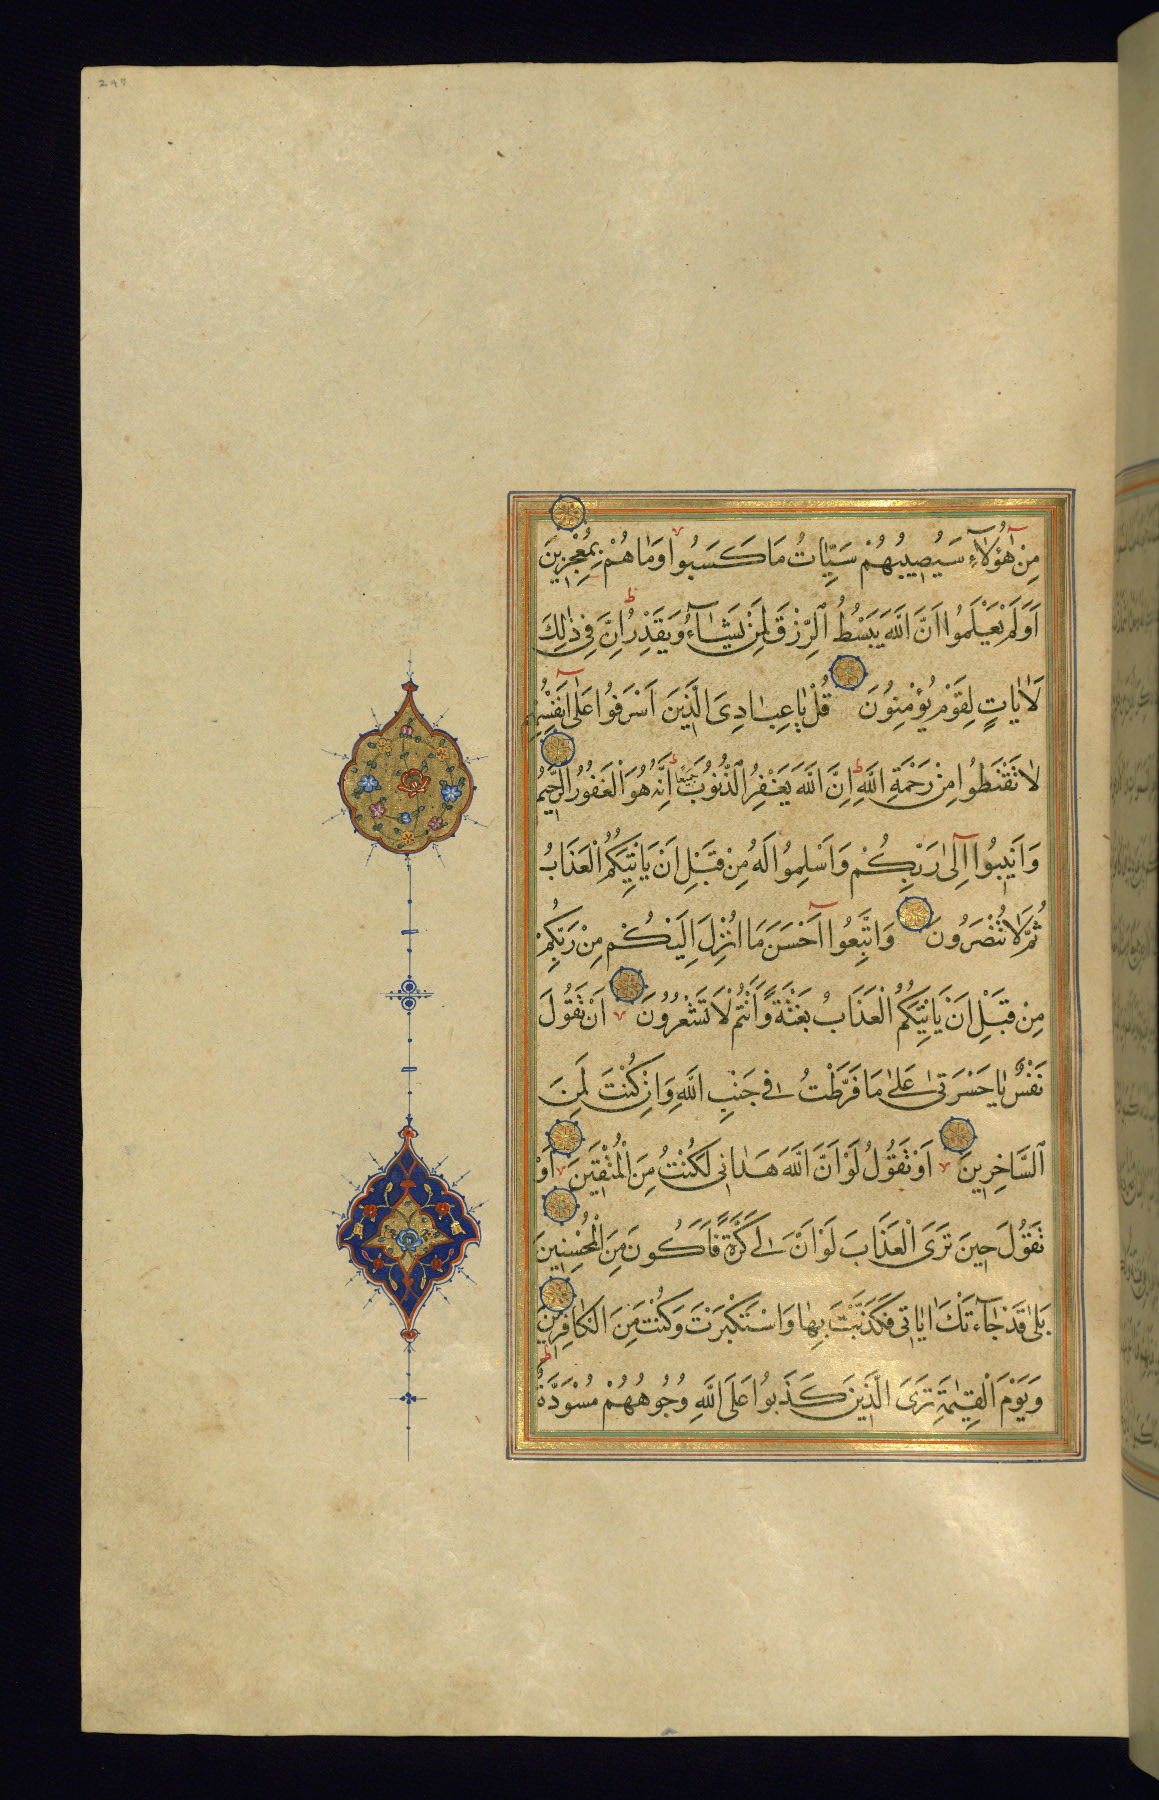 ٢٩٧
مِنْ هٰٓؤُلَآءِ سَيُصِيبُهُمْ سَيِّاٰتُ مَا كَسَبُوا وَمَا هُمْ بِمُعْجِزِينَ
اَوَلَمْ يَعْلَمُوا اَنَّ اللّٰهَ يَبْسُطُ الرِّزْقَ لِمَنْ يَشَآءُ وَيَقْدِرُ اِنَّ فِي ذٰلِكَ
لَاٰيَاتٍ لِقَوْمٍ يُؤْمِنُونَ قُلْ يَا عِبَادِيَ الَّذِينَ اَسْرَفُوا عَلٰٓى اَنْفُسِهِمْ
لَا تَقْنَطُوا مِنْ رَحْمَةِ اللّٰهِ اِنَّ اللّٰهَ يَغْفِرُ الذُّنُوبَ جَمِيعًا اِنَّهُ هُوَ الْغَفُورُ الرَّحِيمُ
وَاَنِيبُوٓا اِلٰى رَبِّكُمْ وَاَسْلِمُوا لَهُ مِنْ قَبْلِ اَنْ يَاْتِيَكُمُ الْعَذَابُ
ثُمَّ لَا تُنْصَرُونَ وَاتَّبِعُوٓا اَحْسَنَ مَا اُنْزِلَ اِلَيْكُمْ مِنْ رَبِّكُمْ
مِنْ قَبْلِ اَنْ يَاْتِيَكُمُ الْعَذَابُ بَغْتَةً وَاَنْتُمْ لَا تَشْعُرُونَ اَنْ تَقُولَ
نَفْسٌ يَا حَسْرَتٰى عَلٰى مَا فَرَّطْتُ فِي جَنْبِ اللّٰهِ وَاِنْ كُنْتُ لَمِنَ
السَّاخِرِينَ اَوْ تَقُولَ لَوْ اَنَّ اللّٰهَ هَدَانِي لَكُنْتُ مِنَ الْمُتَّقِينَ اَوْ
تَقُولَ حِينَ تَرَى الْعَذَابَ لَوْ اَنَّ لِي كَرَّةً فَاَكُونَ مِنَ الْمُحْسِنِينَ
بَلٰى قَدْ جَآءَتْكَ اٰيَاتِي فَكَذَّبْتَ بِهَا وَاسْتَكْبَرْتَ وَكُنْتَ مِنَ الْكَافِرِينَ
وَيَوْمَ الْقِيٰمَةِ تَرَى الَّذِينَ كَذَبُوا عَلَى اللّٰهِ وُجُوهُهُمْ مُسْوَدَّةٌ